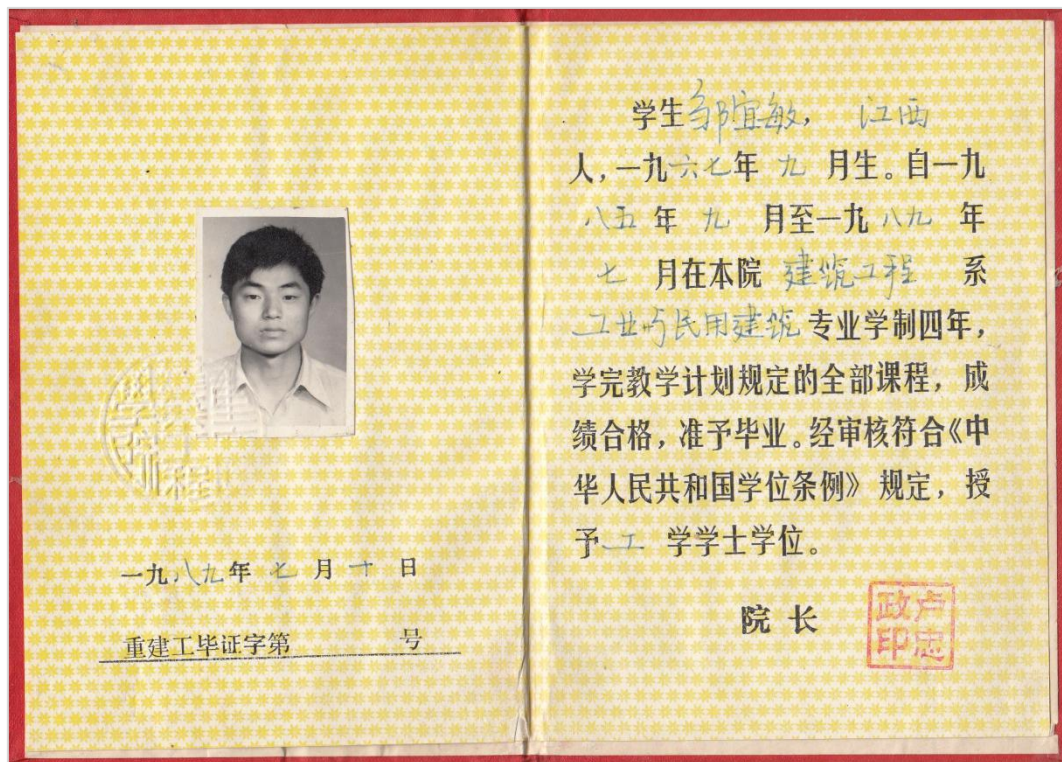 一九八九年七月十日
重建工毕证字第 号
学生邹宜敏, 江西
人,一九六七年 九 月生。自一九
八五 年 九 月至一九八九 年
七 月在本院 建筑工程 系
工业与民用建筑 专业学制四年,
学完教学计划规定的全部课程,成
绩合格,准予毕业。经审核符合《中
华人民共和国学位条例》规定,授
予 工 学学士学位。
院长
卢忠政印